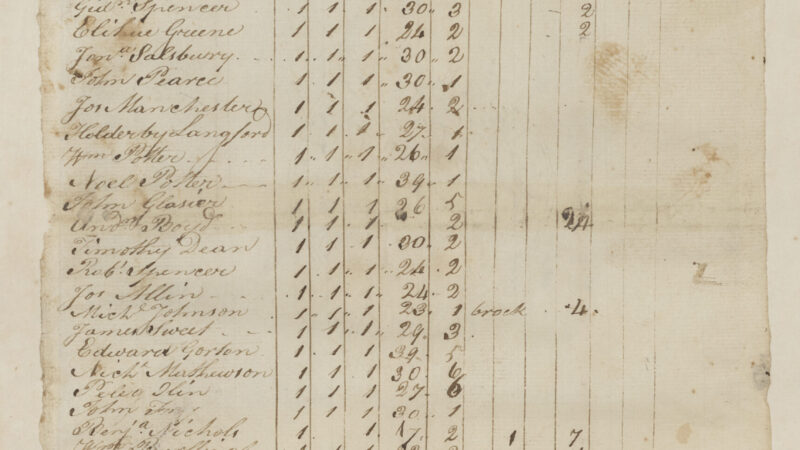 Spencer 1 1 1 30 3 2
Elihue Greene 1 1 1 24 2 2
Jonᵃ Salsbury 1 1 1 30 2
John Pearce 1 1 1 30 1
Jos Manchester 1 1 1 24 2
Holderby Langford 1 1 1 27 1
Wm Potter 1 1 1 26 1
Noel Potter 1 1 1 39 1
John Glasier 1 1 1 26 5
Andʷ Boyd 1 1 1 2 24
Timothy Dean 1 1 1 30 2
Robᵗ Spencer 1 1 1 24 2
Jos Allin 1 1 1 24 2
Michᵈ Johnson 1 1 1 23 1 brock 4
James Sweet 1 1 1 29 3
Edward Gorton 1 1 1 39 5
Nichˢ Mathewson 1 1 1 30 6
1 1 1 27 6
John 1 1 1 30 1
Benjᵃ Nichols 1 1 17 2 1 7